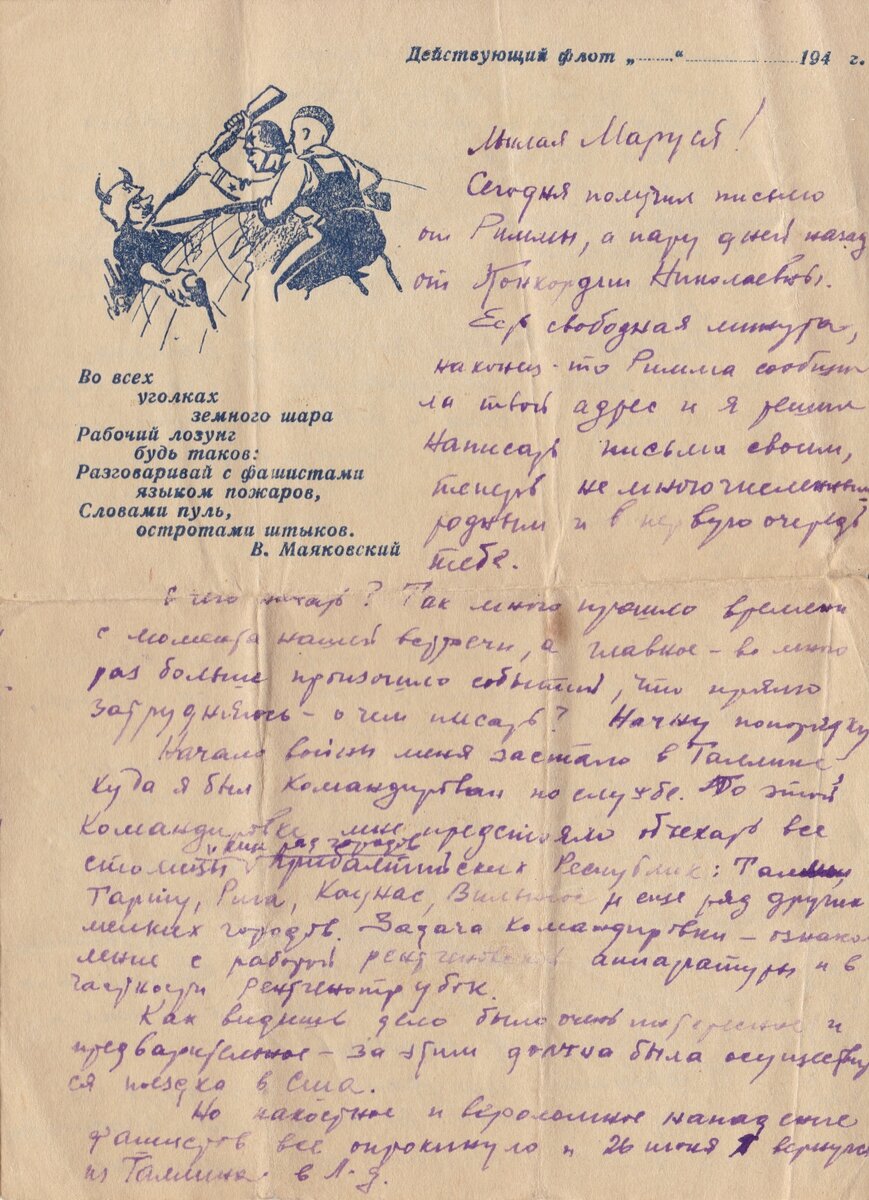 Действующий флот „......“ ................ 194 г.
Милая Маруся!
Сегодня получил письмо
от Риммы, а пару дней назад
от Конкордии Николаевны.
Есть свободная минута,
наконец-то Римма сообщи
ла твой адрес и я решил
написать письма своим,
теперь немногочисленным
родным и в первую очередь
тебе.
Во всех
уголках
земного шара
Рабочий лозунг
будь таков:
Разговаривай с фашистами
языком пожаров,
Словами пуль,
остротами штыков.
В. Маяковский
С чего начать? Так много прошло времени
с момента нашей встречи, а главное – во много
раз больше произошло событий, что прямо
затрудняюсь – о чем писать? Начну попорядку
Начало войны меня застало в Таллине,
куда я был командирован по службе. По этой
командировке мне предстояло объехать все
столицы и ряд городов Прибалтийских Республик: Таллин,
Тарту, Рига, Каунас, Вильнюс и еще ряд других
мелких городов. Задача командировки – ознаком
ление с работой рентгеновской аппаратуры и в
частности рентгенотрубок.
Как видишь дело было очень интересное и
предварительное – за этим должна была осуществи
ся поездка в Сша.
Но пакостное и вероломное нападение
фашистов все опрокинуло и 26 июня я вернулся
из Таллина в Л-д.